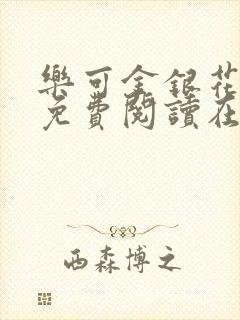 樂可金銀花
免費閱讀在
西森博之